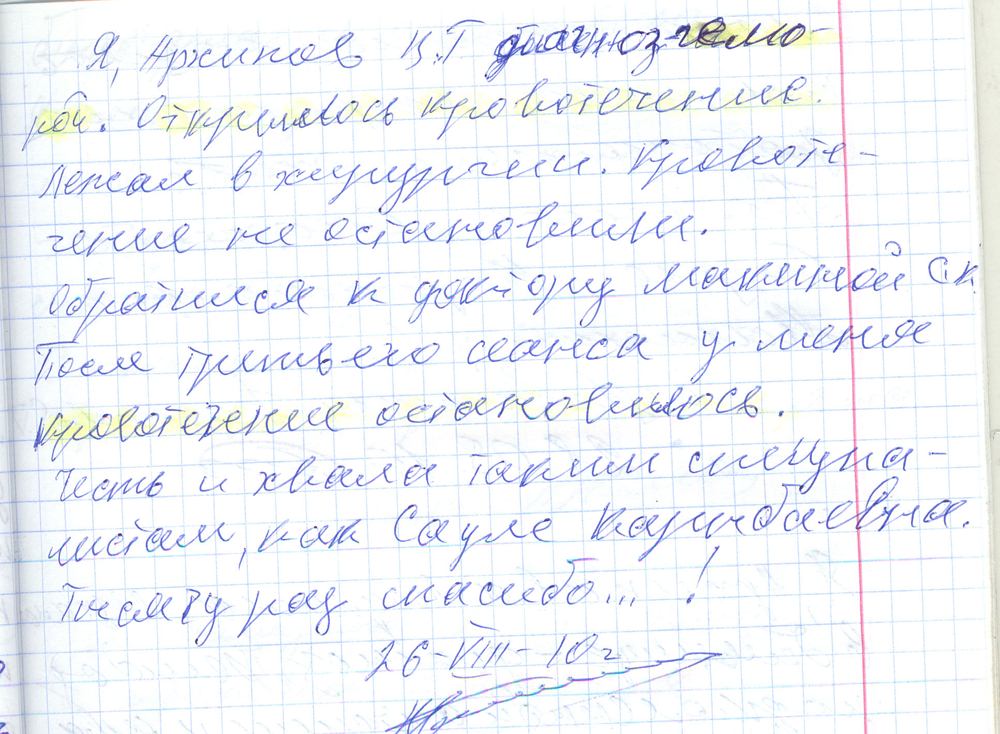 Я, Архипов Ц.Г диагноз-гемо-
рой. Открылось кровотечение.
Лежал в хирургии. Кровоте-
чение не остановили.
Обратился к доктору Макиной С.К.
После третьего сеанса у меня
кровотечение остановилось.
Честь и хвала таким специа-
листам, как Сауле Каирбаевна.
Тысячу раз спасибо...!
26-VIII-10г